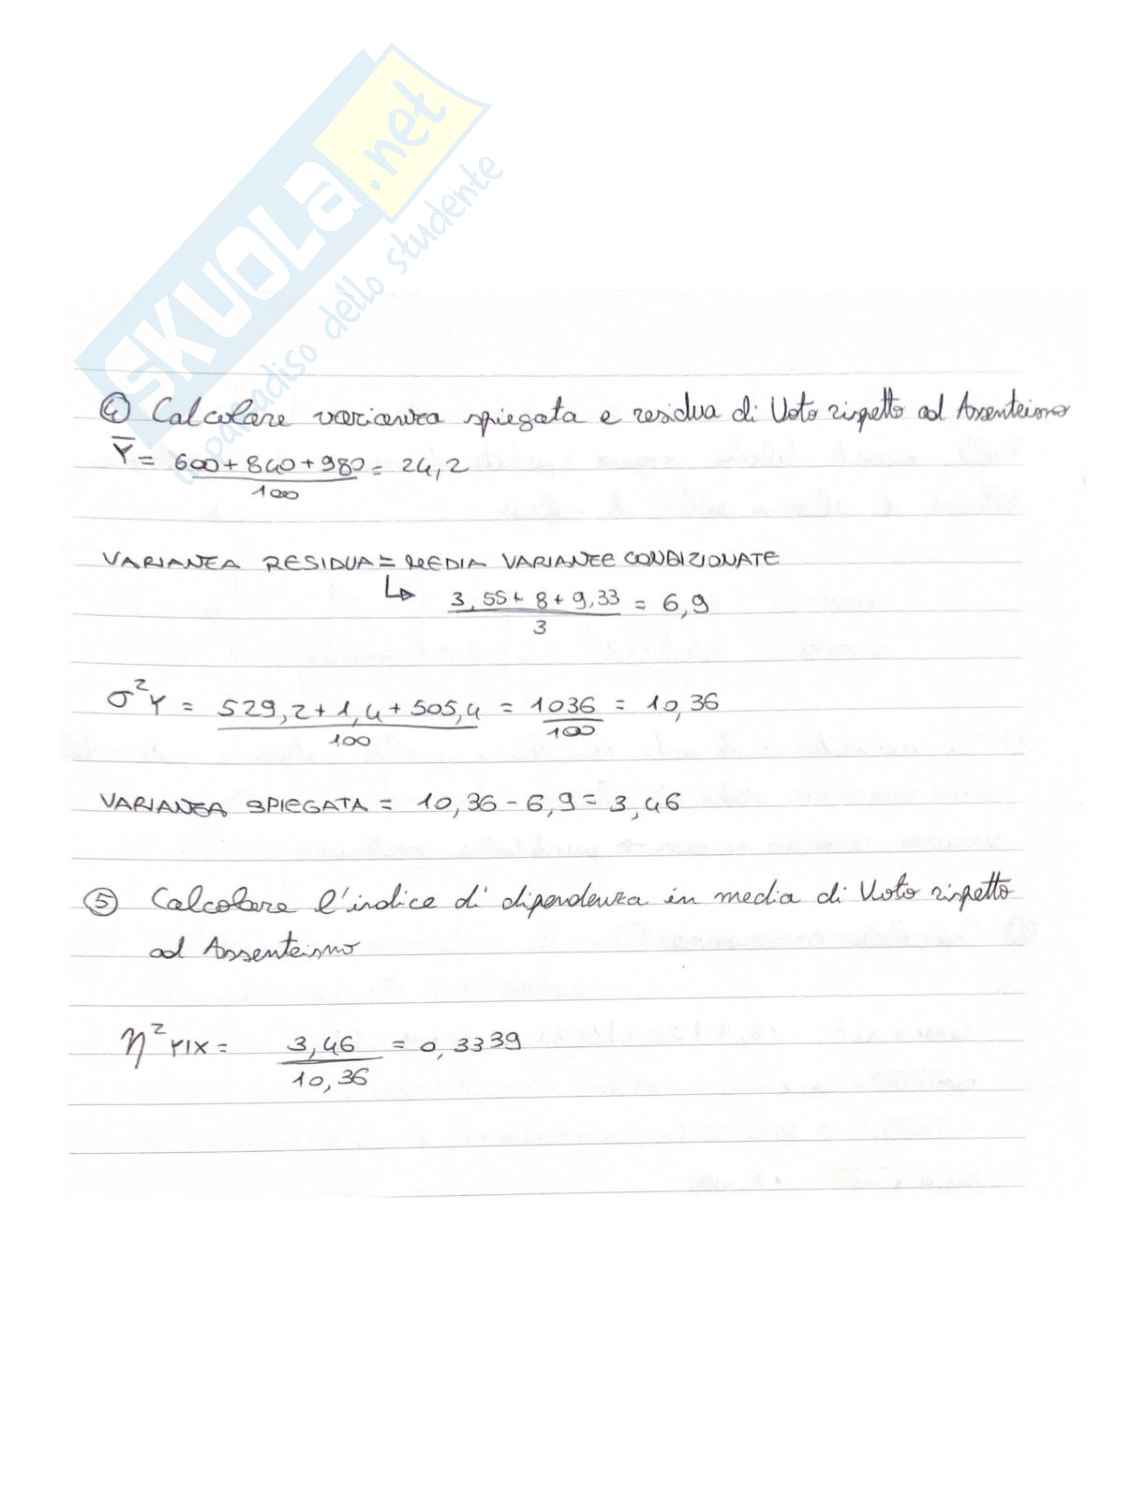 SKUOLA.net
il paradiso dello studente
④ Calcolare varianza spiegata e residua di Voto rispetto ad Assenteismo
Ȳ = 600+840+980 = 24,2
100
VARIANZA RESIDUA = MEDIA VARIANZE CONDIZIONATE
↳ 3,55+ 8+ 9,33 = 6,9
3
σ²Y = 529,2+1,4+505,4 = 1036 = 10,36
100 100
VARIANZA SPIEGATA = 10,36-6,9= 3,46
⑤ Calcolare l'indice di dipendenza in media di Voto rispetto
ad Assenteismo
η²Y|X = 3,46 = 0,3339
10,36